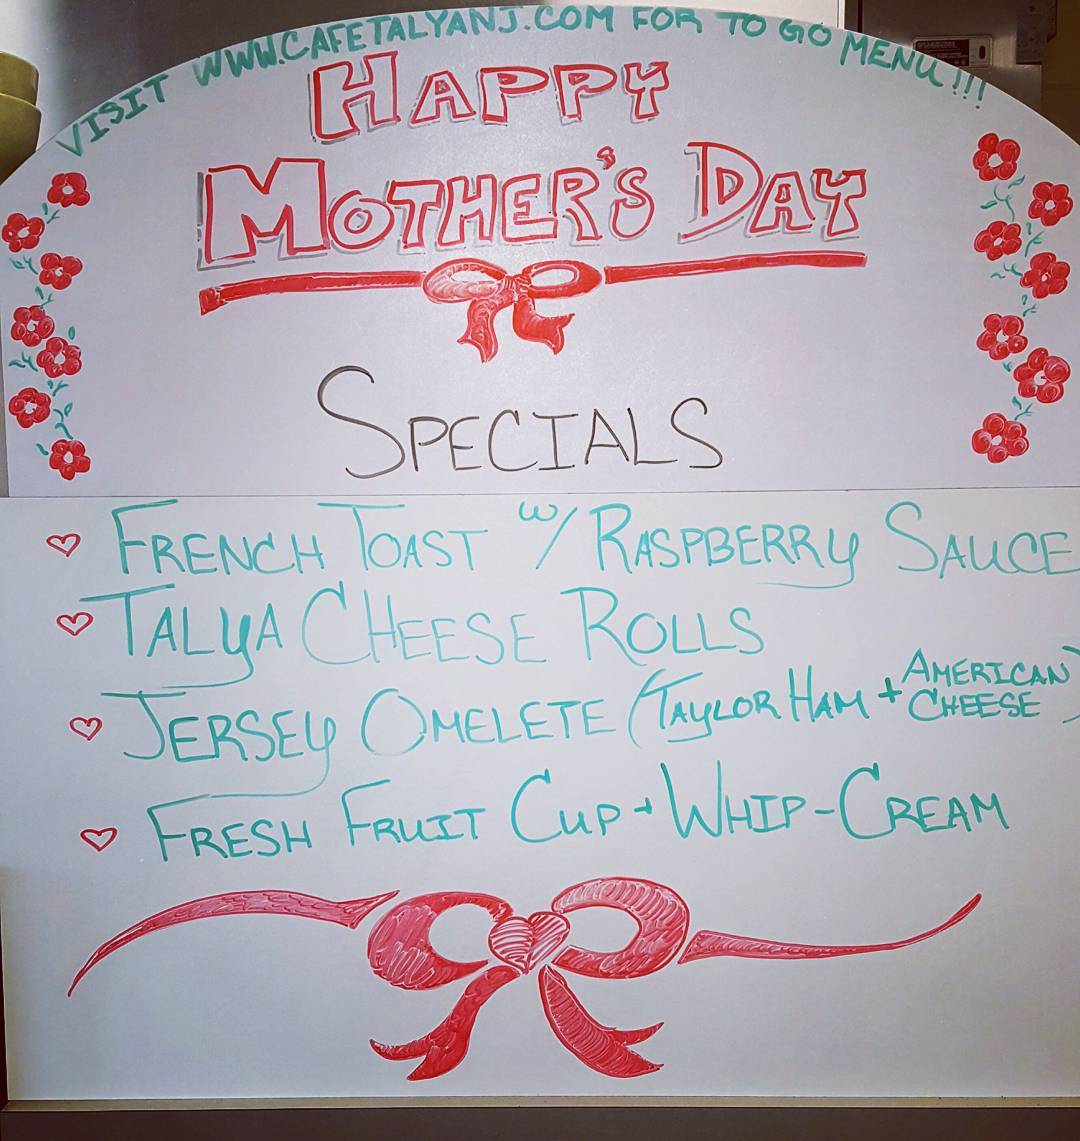 VISIT WWW.CAFETALYANJ.COM FOR TO GO MENU!!!
HAPPY
MOTHER'S DAY
SPECIALS
FRENCH TOAST W/ RASPBERRY SAUCE
TALYA CHEESE ROLLS
JERSEY OMELETE (TAYLOR HAM + AMERICAN CHEESE)
FRESH FRUIT CUP + WHIP-CREAM